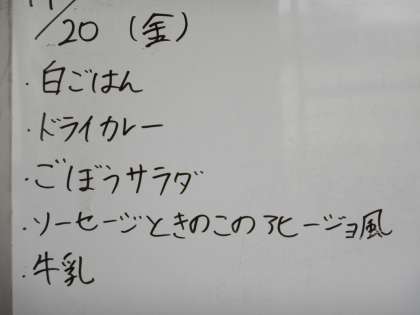 /20 (金)
・白ごはん
・ドライカレー
・ごぼうサラダ
・ソーセージときのこのアヒージョ風
・牛乳